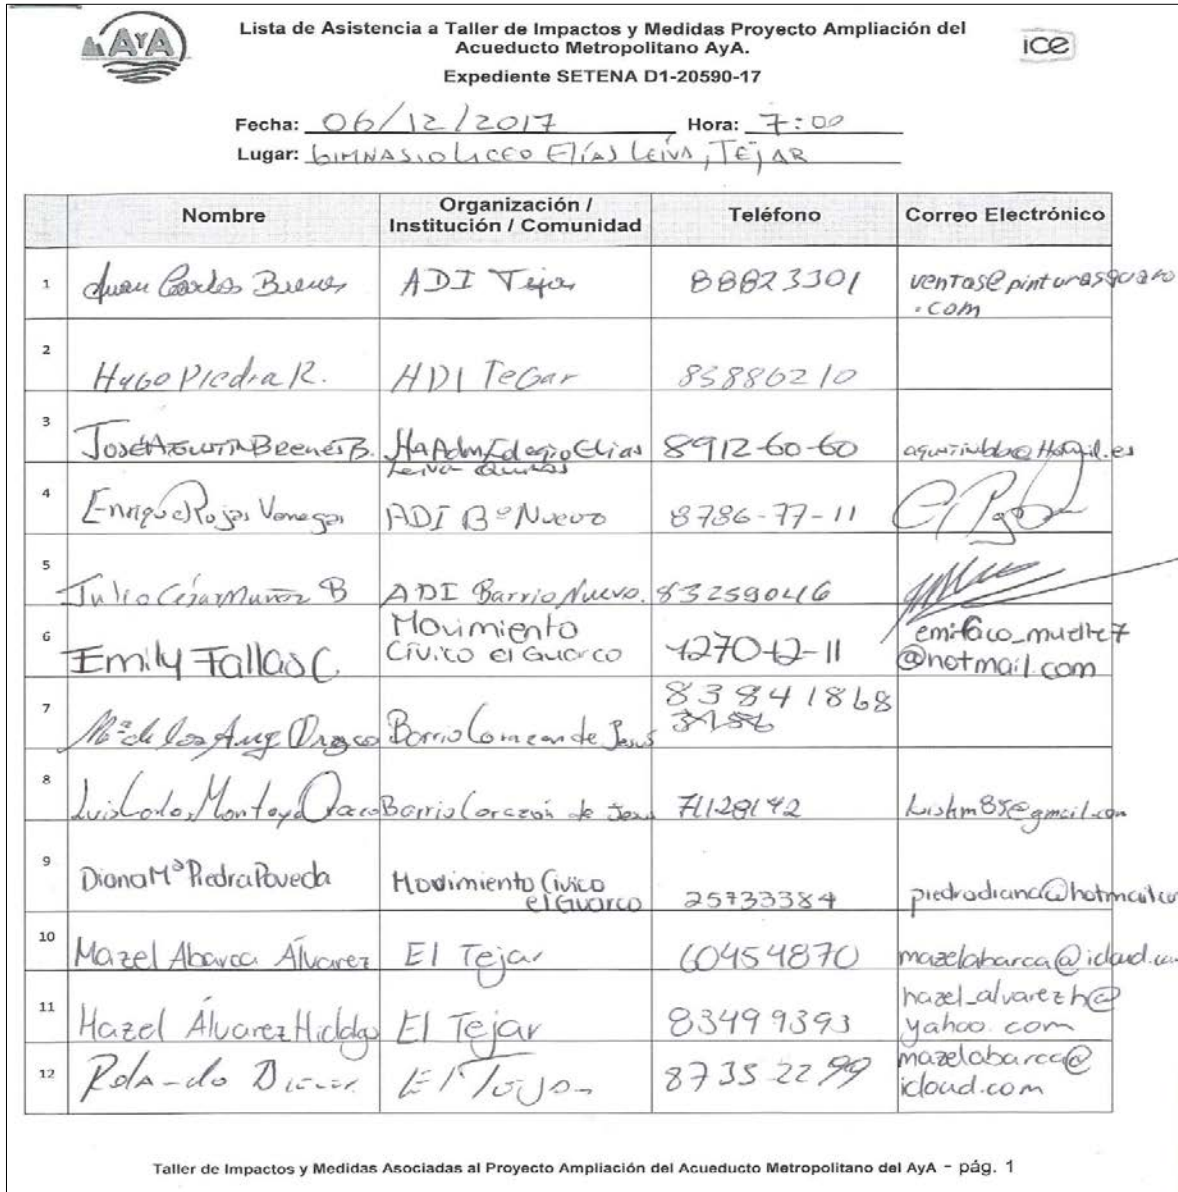 AyA
Lista de Asistencia a Taller de Impactos y Medidas Proyecto Ampliación del
Acueducto Metropolitano AyA.
ice
Expediente SETENA D1-20590-17
Fecha: 06/12/2017 Hora: 7:00
Lugar: GIMNASIO LICEO Elías Leiva, TEJAR
Nombre Organización / Institución / Comunidad Teléfono Correo Electrónico
1 Juan Carlos Brenes ADI Tejar 88823301 ventas@pinturasguarco
.com
2 Hugo Piedra R. ADI TeGar 85886210
3 José Agustín Brenes B. Adm Colegio Elias 8912-60-60
Leiva Quirós
4 Enrique Rojas Venegas ADI Bº Nuevo 8786-77-11
5 Julio César Muñoz B ADI Barrio Nuevo. 83259046
6 Emily Fallas C Movimiento
Cívico el Guarco
@hotmail.com
7 Mª de los Ang Orozco Barrio Corazon de Jesús 83841868
8 Luis Carlos Montoya Orozco Barrio Corazón de Jesus 71128142 @gmail.com
9 Diana Mª Piedra Poveda Movimiento Cívico
el Guarco 25733384 piedradiana@hotmail.co
10 Mazel Abarca Álvarez El Tejar 60454870 mazelabarca@icloud.com
11 Hazel Álvarez Hidalgo El Tejar 83499393 hazel_alvarezh@
yahoo.com
12 Rolando El Tejar 8735 22 99 mazelabarca@
icloud.com
Taller de Impactos y Medidas Asociadas al Proyecto Ampliación del Acueducto Metropolitano del AyA - pág. 1